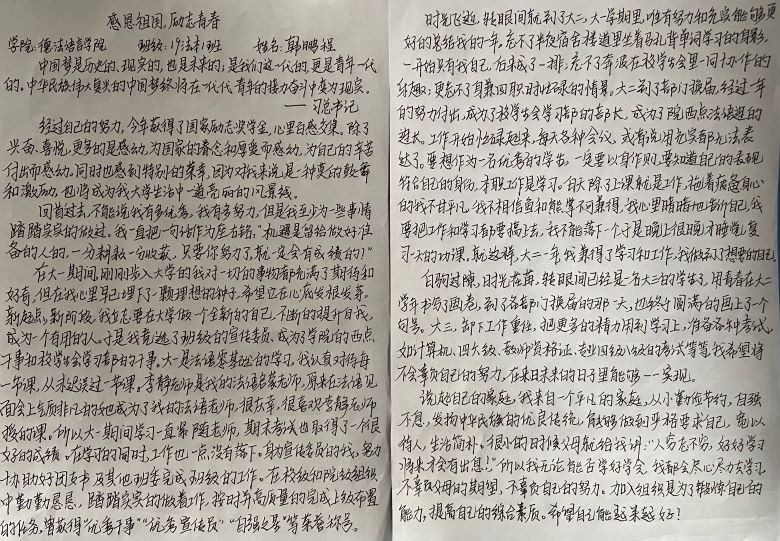 感恩祖国,励志青春
学院:德法语学院 班级:19法本1班 姓名:韩鹏程
中国梦是历史的、现实的,也是未来的;是我们这一代的,更是青年一代
的。中华民族伟大复兴的中国梦终将在一代代青年的接力奋斗中变为现实。
——习总书记
经过自己的努力,今年获得了国家励志奖学金,心里百感交集。除了
兴奋、喜悦,更多的是感动,为国家的眷念和厚爱而感动,为自己的辛苦
付出而感动。同时也感到特别的荣幸,因为对我来说是一种莫的鼓舞
和激励,也将成为我大学生活中一道亮丽的风景线。
回首过去,不能说我有多优秀,我有多努力,但是我至少为一些事情
踏踏实实的做过,我一直把一句话作为座右铭:"机遇是留给做好准
备的人的,一分耕耘一分收获,只要你努力了就一定会有成绩的!"
在大一期间,刚刚步入大学的我对一切的事物都充满了期待和
好奇,但在我心里早已埋下了一颗理想的种子,希望它在心底发根发芽。
新起点,新阶段,我立志要在大学做一个全新的自己,不断的提升自我,
成为一个有用的人。于是我竞选了班级的宣传委员,成为了学院的西点
干事和校学生会学习部的干事。大一是法语零基础的学习,我认真对待每
一节课,从未迟过一节课。李静老师是我的法语启蒙老师,原来在法语见
面会上气质非凡的她成为了我的法语老师,很庆幸,很喜欢李静老师
教的课。所以大一期间学习一直紧随老师,期末考试也取得了一个很
好的成绩。在学习的同时,工作也一点没有落下。身为宣传委员的我,努力
协助好团支书及其他班委完成班级的工作。在校级和院级组织
中勤勤恳恳,踏踏实实的做着工作,按时并高质量的完成上级布置
的任务,曾获得"优秀干事""优秀宣传员""自强之星"等荣誉称号。
时光飞逝,转眼间就到了大二,大二学期里,唯有努力和充实能够更
好的总结我的一年。忘不了半夜宿舍楼道里坐着马扎背单词学习的身影,
一开始只有我自己,后来成了一排;忘不了奔波在校学生会里一同协作的
乐趣;更忘不了身兼四职时忙碌的情景,大二到了部门换届,经过一年
的努力付出,成为了校学生会学习部的部长,成为了院西点法语道的
道长,工作开始忙碌起来,每天各种会议,或者说用充实都无法表
达了。要想作为一名优秀的学生,一定要以身作则,要知道自己的表现
符合自己的身份,本职工作是学习。白天除了上课就是工作,拖着疲惫身心
的我不甘平凡。我不相信鱼和熊掌不可兼得,我心里暗暗地告诉自己,我
要把工作和学习都要搞上去,我不能落下,于是晚上很晚才睡觉,复
习一天的功课,就这样,大二一年,我兼得了学习和工作,我做到了想要的自己。
白驹过隙,时光荏苒,转眼间已经是一名大三的学生了,用青春在大二
学年书写了画卷,到了各部门换届的那一天,也终于圆满的画上了一个
句号。大三,卸下工作重任,把更多的精力用到学习上,准备各种考试,
如计算机、四六级、教师资格证、专业四级八级的考试等等,我希望将
不会辜负自己的努力,在来日未来的日子里能够一一实现。
说起自己的家庭,我来自一个平凡的家庭,从小勤俭节约,自强
不息,发扬中华民族的优良传统,能够做到严格要求自己,宽以
待人,生活简朴。很小的时候父母就给我讲:"人穷志不穷,好好学习
将来才会有出息!"所以我无论能否学好学会,我都会尽心尽力去学习,
不辜负父母的期望,不辜负自己的努力。加入组织是为了锻炼自己的
能力,提高自己的综合素质。希望自己能越来越好!